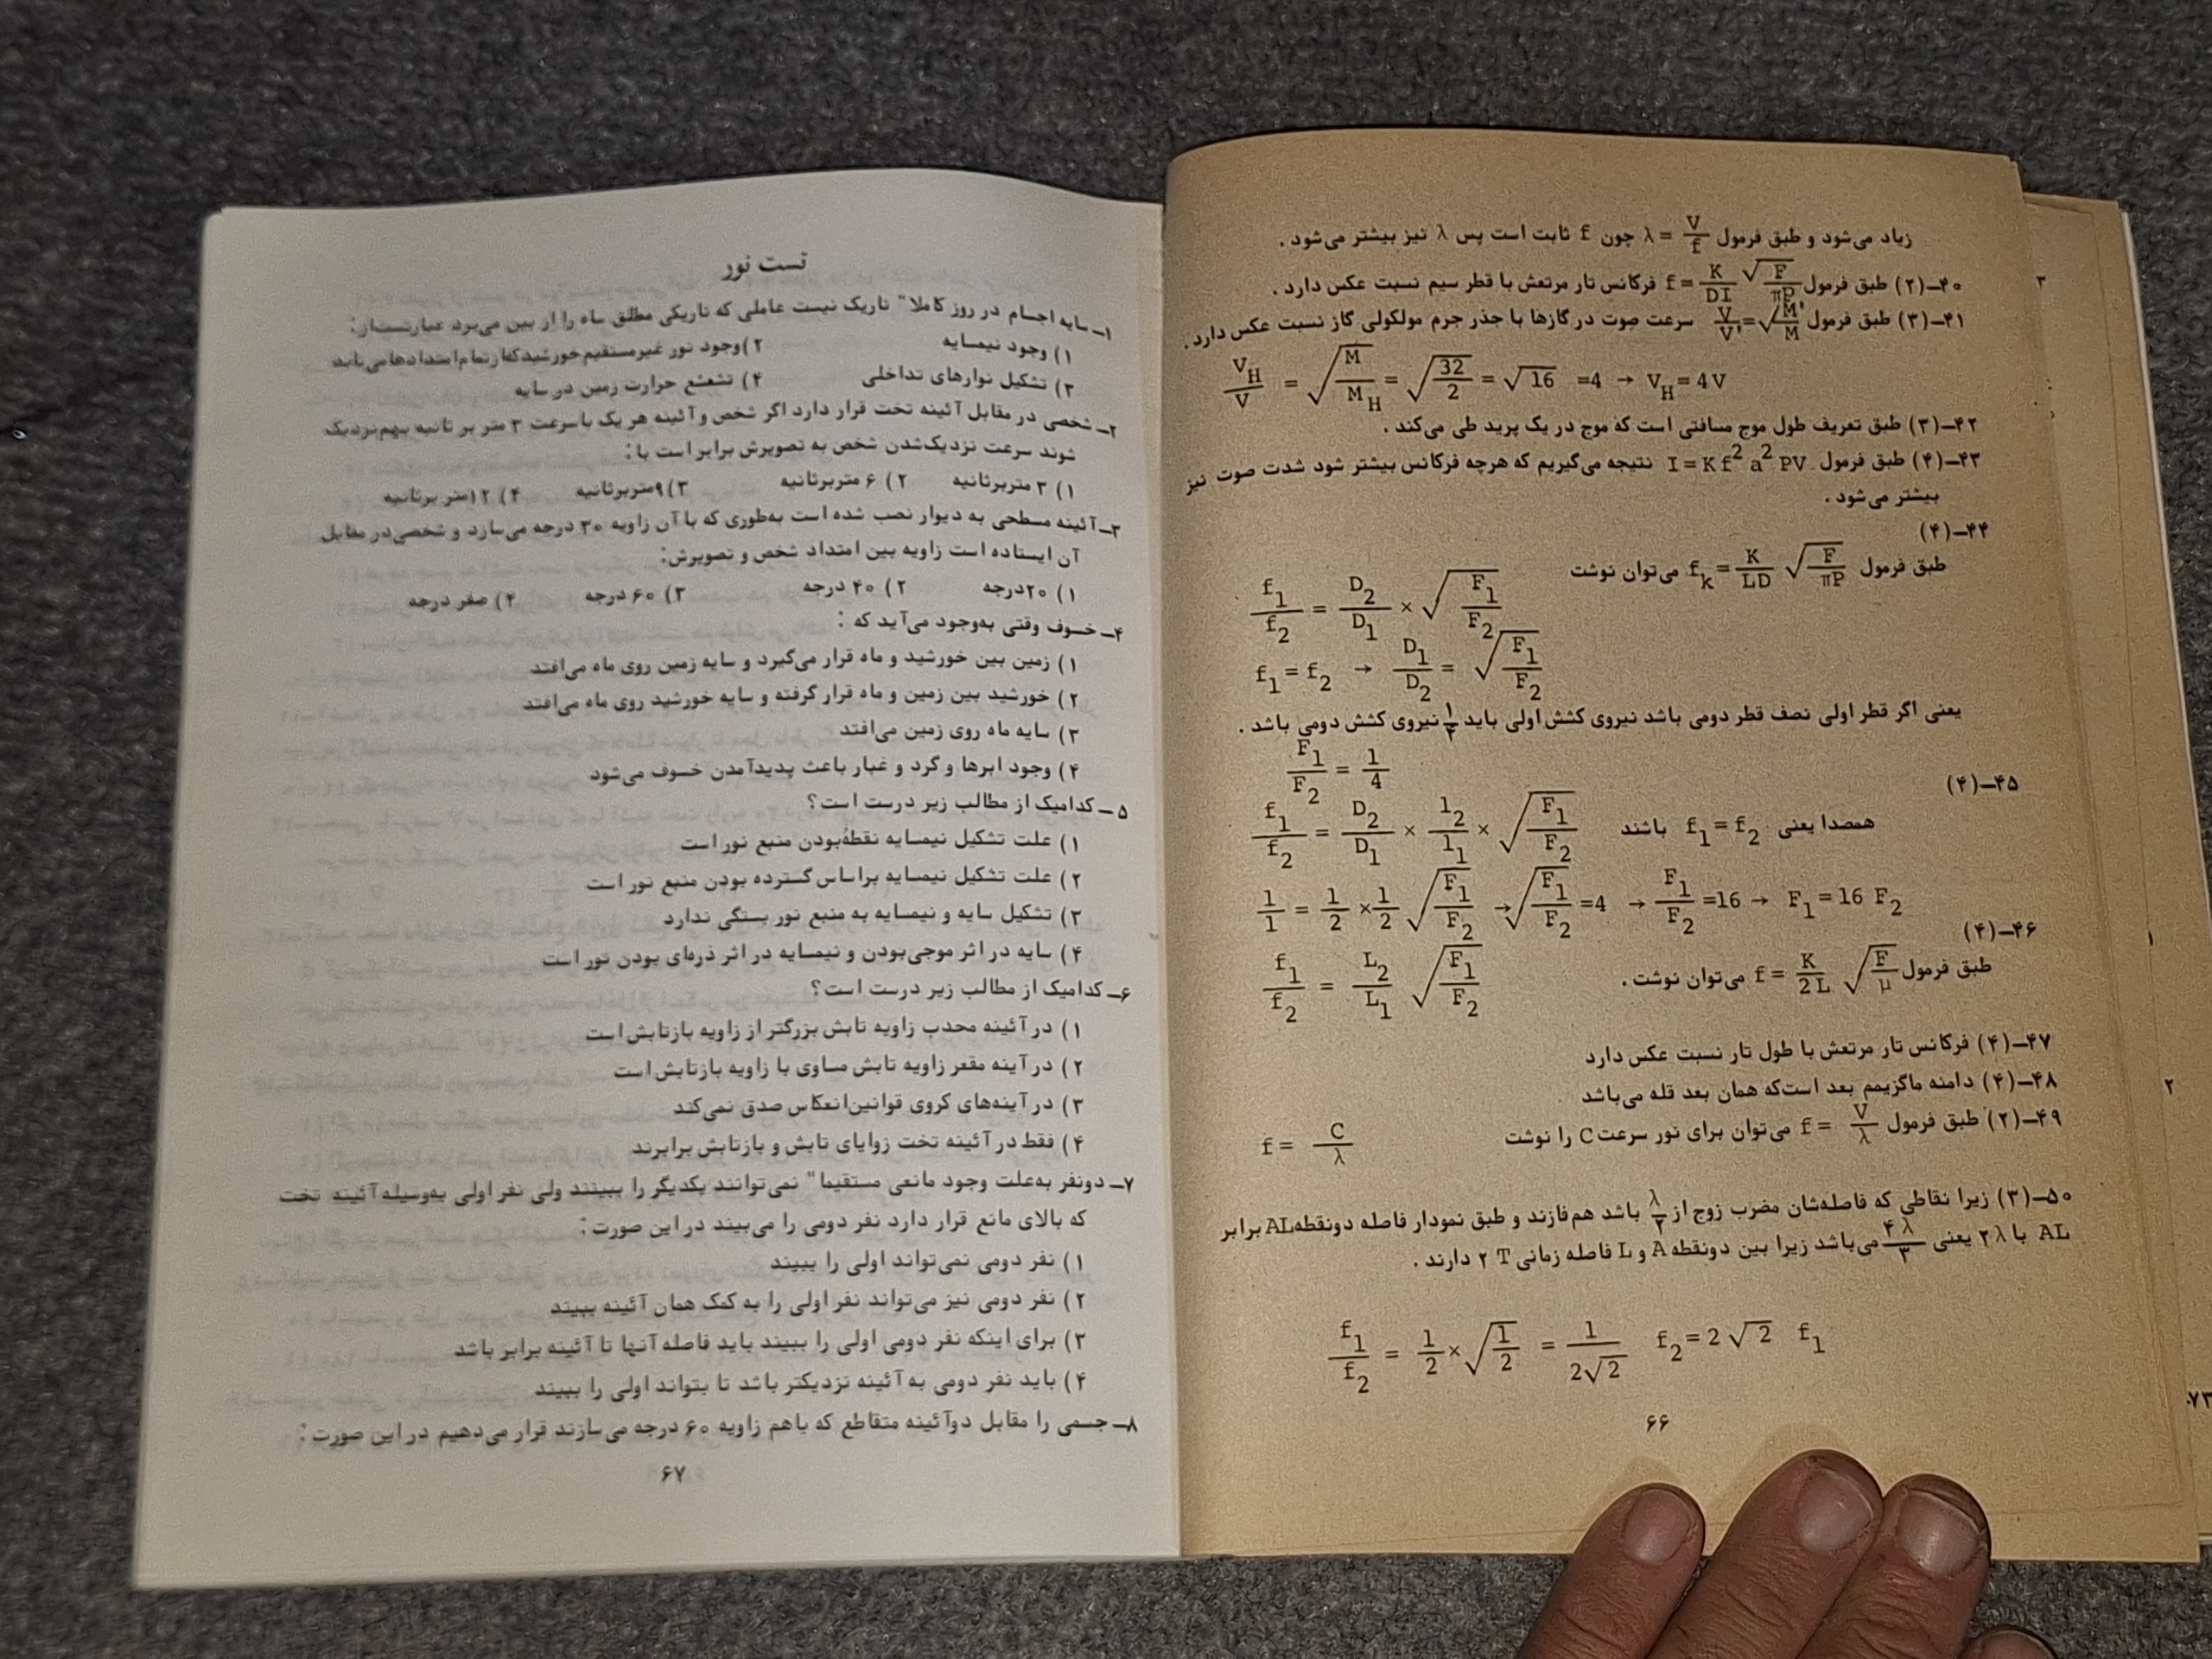 زیاد می‌شود و طبق فرمول λ = V/f چون f ثابت است پس λ نیز بیشتر می‌شود .
۴۰ــ(۲) طبق فرمول f = K/Dl √F/πP فرکانس تار مرتعش با قطر سیم نسبت عکس دارد .
۴۱ــ(۳) طبق فرمول V/V' = √M'/M سرعت صوت در گازها با جذر جرم مولکولی گاز نسبت عکس دارد .
V_H/V = √M/M_H = √32/2 = √16 =4 → V_H = 4V
۴۲ــ(۳) طبق تعریف طول موج مسافتی است که موج در یک پرید طی می‌کند .
۴۳ــ(۴) طبق فرمول I = Kf² a² PV نتیجه می‌گیریم که هرچه فرکانس بیشتر شود شدت صوت نیز
بیشتر می‌شود .
۴۴ــ(۴)
طبق فرمول f_k = K/LD √F/πP می‌توان نوشت
f₁/f₂ = D₂/D₁ × √F₁/F₂
f₁ = f₂ → D₁/D₂ = √F₁/F₂
یعنی اگر قطر اولی نصف قطر دومی باشد نیروی کشش اولی باید ۱/۴ نیروی کشش دومی باشد .
F₁/F₂ = 1/4
۴۵ــ(۴)
همصدا یعنی f₁ = f₂ باشند
f₁/f₂ = D₂/D₁ × l₂/l₁ × √F₁/F₂
1/1 = 1/2 × 1/2 √F₁/F₂ → √F₁/F₂ =4 → F₁/F₂ =16 → F₁ = 16 F₂
۴۶ــ(۴)
طبق فرمول f = K/2L √F/μ می‌توان نوشت .
f₁/f₂ = L₂/L₁ √F₁/F₂
۴۷ــ(۴) فرکانس تار مرتعش با طول تار نسبت عکس دارد
۴۸ــ(۴) دامنه ماگزیمم بعد است‌که همان بعد قله می‌باشد
۴۹ــ(۲) طبق فرمول f = V/λ می‌توان برای نور سرعت C را نوشت
f = C/λ
۵۰ــ(۳) زیرا نقاطی که فاصله‌شان مضرب زوج از λ/۲ باشد هم‌فازند و طبق نمودار فاصله دونقطه AL برابر
AL با ۲λ یعنی ۴λ/۳ می‌باشد زیرا بین دونقطه A و L فاصله زمانی ۲T دارند .
f₁/f₂ = 1/2 × √1/2 = 1/2√2 f₂ = 2√2 f₁
۶۶
تست نور
۱ــ سایه اجسام در روز کاملا" تاریک نیست عاملی که تاریکی مطلق ساه را از بین می‌برد عبارتست‌از:
۱) وجود نیمسایه ۲) وجود نور غیرمستقیم خورشیدکه‌ازتمام‌امتدادهامی‌تابد
۳) تشکیل نوارهای تداخلی ۴) تشعشع حرارت زمین در سایه
۲ــ شخصی در مقابل آئینه تخت قرار دارد اگر شخص و آئینه هر یک باسرعت ۳ متر بر ثانیه بهم‌نزدیک
شوند سرعت نزدیک‌شدن شخص به تصویرش برابر است با:
۱) ۳ متربرثانیه ۲) ۶ متربرثانیه ۳) ۹متربرثانیه ۴) ۱۲متر برثانیه
۳ــ آئینه مسطحی به دیوار نصب شده است به‌طوری که با آن زاویه ۳۰ درجه می‌سازد و شخصی‌در مقابل
آن ایستاده است زاویه بین امتداد شخص و تصویرش:
۱) ۲۰درجه ۲) ۴۰ درجه ۳) ۶۰ درجه ۴) صفر درجه
۴ــ خسوف وقتی به‌وجود می‌آید که :
۱) زمین بین خورشید و ماه قرار می‌گیرد و سایه زمین روی ماه می‌افتد
۲) خورشید بین زمین و ماه قرار گرفته و سایه خورشید روی ماه می‌افتد
۳) سایه ماه روی زمین می‌افتد
۴) وجود ابرها و گرد و غبار باعث پدیدآمدن خسوف می‌شود
۵ــ کدامیک از مطالب زیر درست است؟
۱) علت تشکیل نیمسایه نقطهٔ‌بودن منبع نور است
۲) علت تشکیل نیمسایه براساس گسترده بودن منبع نور است
۳) تشکیل سایه و نیمسایه به منبع نور بستگی ندارد
۴) سایه در اثر موجی‌بودن و نیمسایه در اثر ذره‌ای بودن نور است
۶ــ کدامیک از مطالب زیر درست است؟
۱) در آئینه محدب زاویه تابش بزرگتر از زاویه بازتابش‌است
۲) در آینه مقعر زاویه تابش مساوی با زاویه بازتابش‌است
۳) در آینه‌های کروی قوانین‌انعکاس صدق نمی‌کند
۴) فقط در آئینه تخت زوایای تابش و بازتابش برابرند
۷ــ دونفر به‌علت وجود مانعی مستقیما" نمی‌توانند یکدیگر را ببینند ولی نفر اولی به‌وسیله آئینه تخت
که بالای مانع قرار دارد نفر دومی را می‌بیند در این صورت:
۱) نفر دومی نمی‌تواند اولی را ببیند
۲) نفر دومی نیز می‌تواند نفر اولی را به کمک همان آئینه ببیند
۳) برای اینکه نفر دومی اولی را ببیند باید فاصله آنها تا آئینه برابر باشد
۴) باید نفر دومی به آئینه نزدیکتر باشد تا بتواند اولی را ببیند
۸ــ جسمی را مقابل دوآئینه متقاطع که باهم زاویه ۶۰ درجه می‌سازند قرار می‌دهیم در این صورت:
۶۷